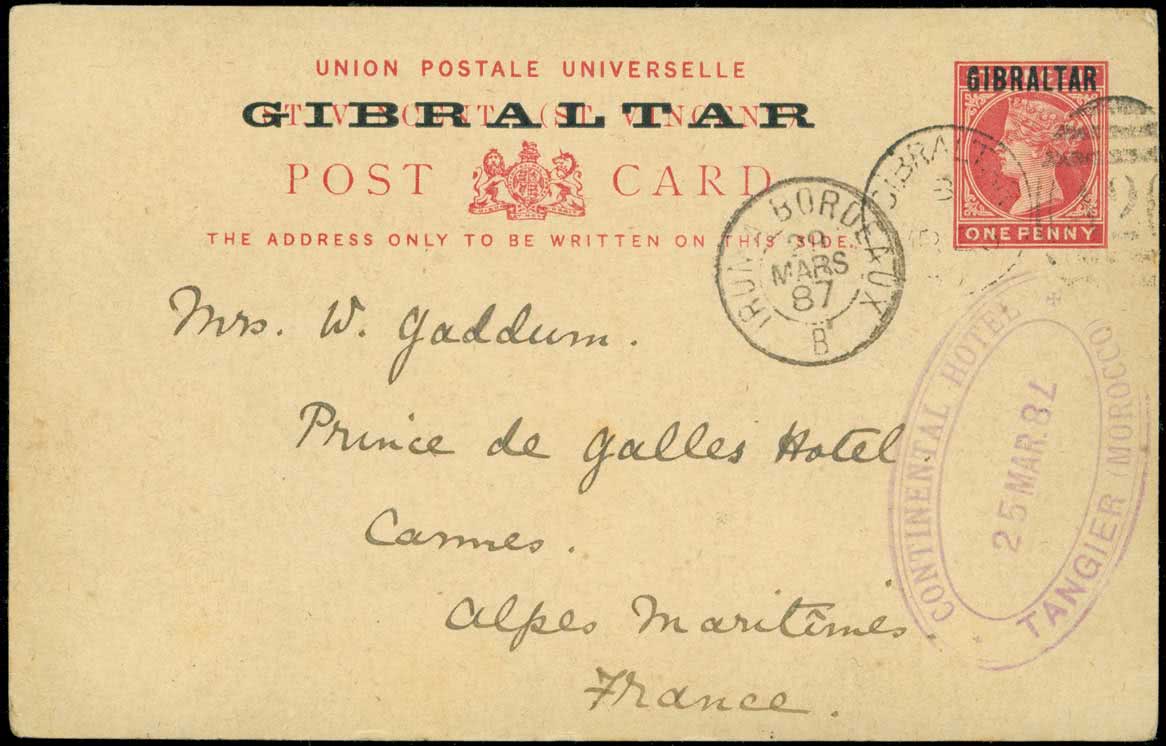 UNION POSTALE UNIVERSELLE
GIBRALTAR
ST VINCENT (ST. VINCENT)
POST CARD
THE ADDRESS ONLY TO BE WRITTEN ON THIS SIDE.
GIBRALTAR
ONE PENNY
GIBRALTAR
IRUN A BORDEAUX
29
MARS
87
B
CONTINENTAL HOTEL
25 MAR. 87
TANGIER (MOROCCO)
Mrs. W. Gaddum.
Prince de Galles Hotel.
Cannes.
Alpes Maritîmes.
France.